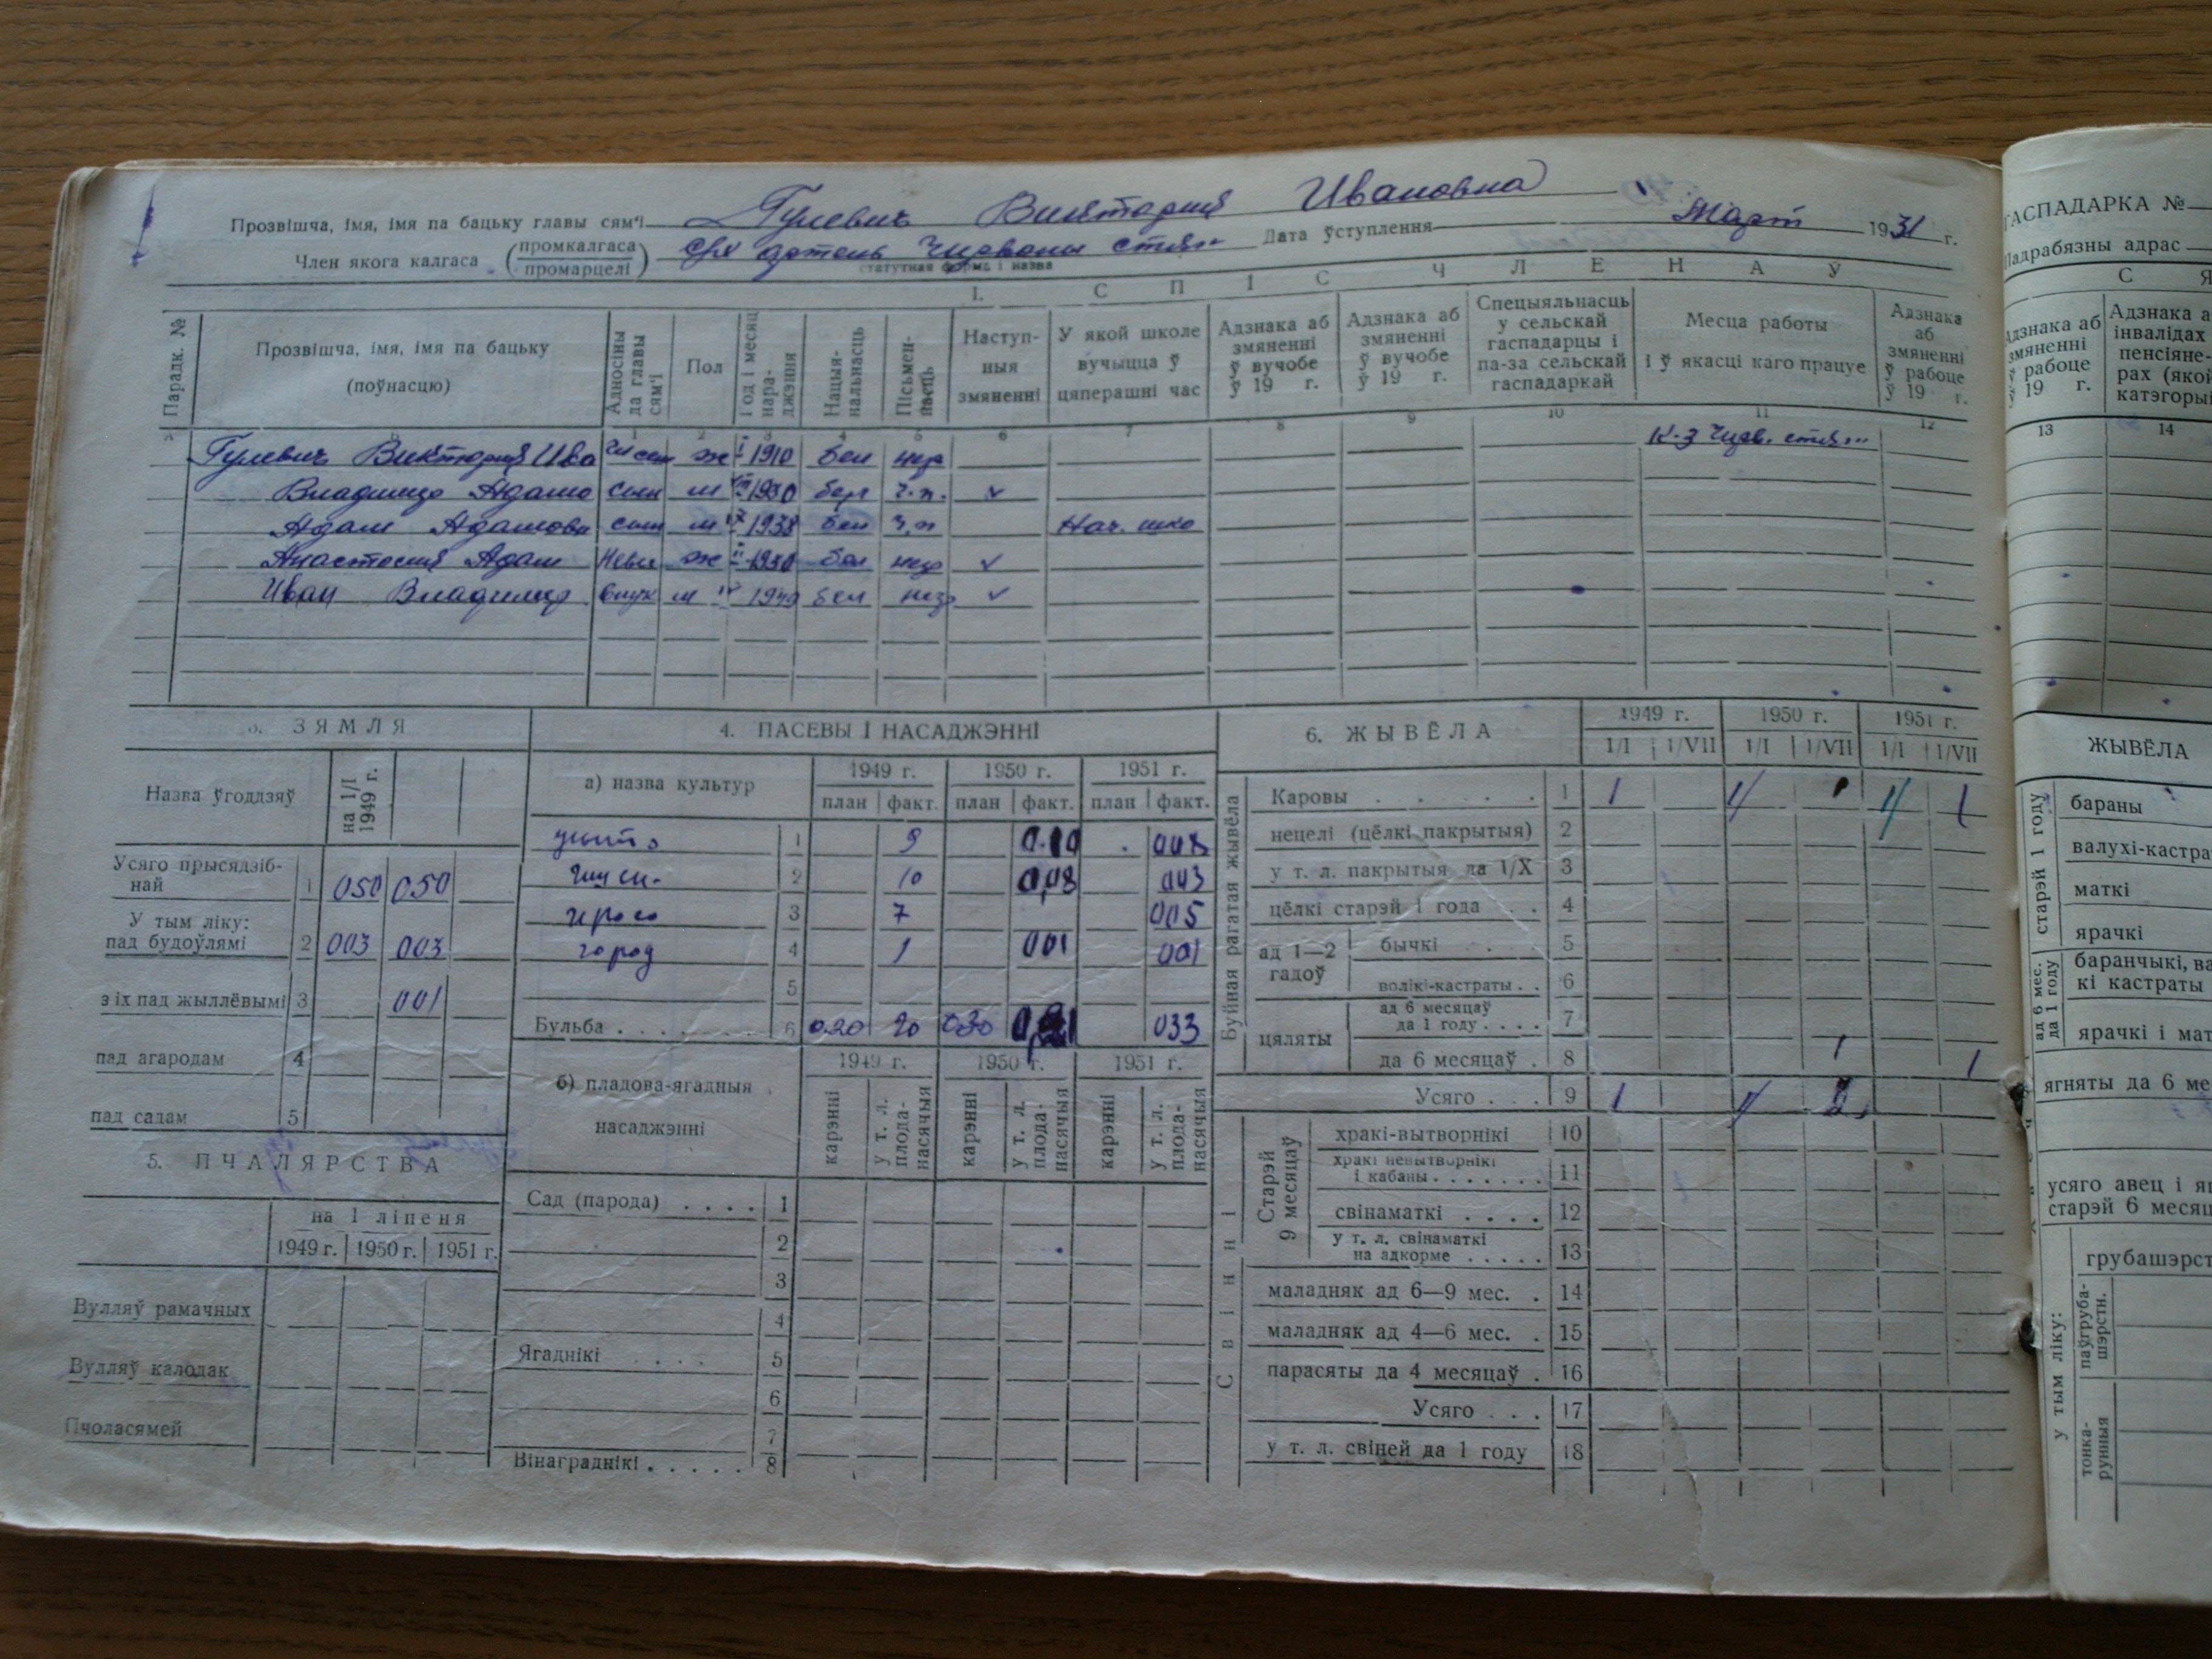 Прозвішча, імя, імя па бацьку главы сям'і Гулевич Виктория Ивановна
Член якога калгаса (промкалгаса промарцелі) с/х артель Чирвоны Дата ўступлення Март 1931 г.
статутная форма і назва
1. С П І С Ч Л Е Н А Ў
Парадк. № Прозвішча, імя, імя па бацьку (поўнасцю) Адносіны да главы сям'і Пол Год і месяц нараджэння Нацыянальнасць Пісьменнасць Наступныя змяненні У якой школе вучыцца ў цяперашні час Адзнака аб змяненні ў вучобе ў 19 г. Адзнака аб змяненні ў вучобе ў 19 г. Спецыяльнасць у сельскай гаспадарцы і па-за сельскай гаспадаркай Месца работы і ў якасці каго працуе Адзнака аб змяненні ў рабоце ў 19 г.
1 2 3 4 5 6 7 8 9 10 11 12
Гулевич Виктория Ива ж I 1910 бел нег К-з Чирв.
Владимир Адамо сын м 1930 бел г.п. ✓
Адам Адамови сын м 1938 бел Нач. шко
Анастасия Адам Невес ж II 1930 бел ✓
Иван Владимир внук м 1949 бел ✓
3. ЗЯМЛЯ
Назва ўгоддзяў на 1/I 1949 г.
Усяго прысядзібнай 1 050 050
У тым ліку: пад будоўлямі 2 003 003
з іх пад жыллёвымі 3 001
пад агародам 4
пад садам 5
5. ПЧАЛЯРСТВА
на 1 ліпеня
1949 г. 1950 г. 1951 г.
Вулляў рамачных
Вулляў калодак
Пчоласямей
4. ПАСЕВЫ І НАСАДЖЭННІ
а) назва культур 1949 г. 1950 г. 1951 г.
план факт. план факт. план факт.
жито 1 9 0.10 008
2 10 0,08 003
просо 3 7 005
город 4 1 001 001
5
Бульба 6 0.20 20 030 033
б) пладова-ягадныя насаджэнні 1949 г. 1950 г. 1951 г.
карэнні у т. л. плоданасячыя карэнні у т. л. плоданасячыя карэнні у т. л. плоданасячыя
Сад (парода) 1
2
3
4
Ягаднікі 5
6
7
Вінаграднікі 8
6. ЖЫВЁЛА 1949 г. 1950 г. 1951 г.
1/I 1/VII 1/I 1/VII 1/I 1/VII
Буйная рагатая жывёла
Каровы 1 1 1 1 1 1
нецелі (цёлкі пакрытыя) 2
у т. л. пакрытыя да 1/X 3
цёлкі старэй 1 года 4
ад 1—2 гадоў бычкі 5
волікі-кастраты 6
цяляты ад 6 месяцаў да 1 году 7
да 6 месяцаў 8 1 1
Усяго 9 1 1 2
Свінні
Старэй 9 месяцаў
хракі-вытворнікі 10
хракі невытворнікі і кабаны 11
свінаматкі 12
у т. л. свінаматкі на адкорме 13
маладняк ад 6—9 мес. 14
маладняк ад 4—6 мес. 15
парасяты да 4 месяцаў 16
Усяго 17
у т. л. свіней да 1 году 18
ГАСПАДАРКА №
Падрабязны адрас
С
Адзнака аб змяненні ў рабоце ў 19 г.
13 14
ЖЫВЁЛА
старэй 1 году
бараны
маткі
ярачкі
ад 6 мес. да 1 году
ярачкі і
ягняты да 6
усяго авец і
старэй 6
у тым ліку:
паўгрубашэрсн.
тонкарунныя